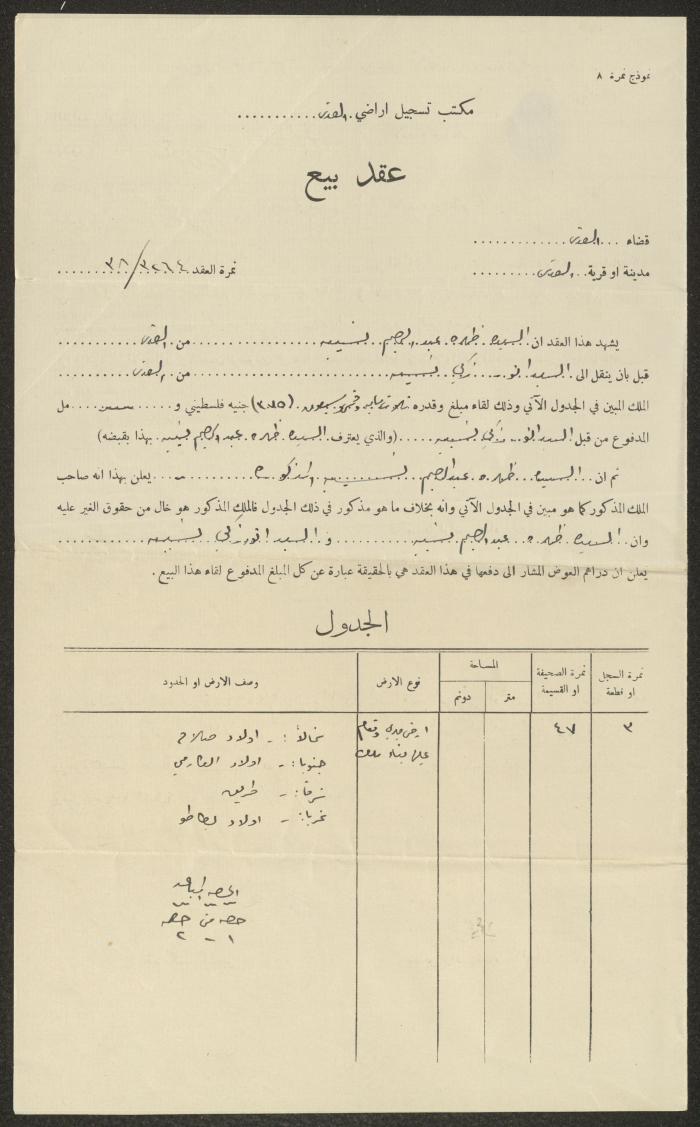 نموذج نمرة ٨
مكتب تسجيل اراضي . القدس . . . . . . . . . . .
عقد بيع
قضاء . . . القدس . . . . . . . . . . . . .
مدينة او قرية . . القدس . . . . . . . . .
نمرة العقد ٣٢٦٤/٣٨ . . . . . . . .
يشهد هذا العقد ان السيده زهره عبد الرحيم نسيبه . . . . . . . . . . . . من . القدس . . . . . . . . . . .
قبل بأن ينقل الى . السيد انور زكي نسيبه . . . . . . . . . . . . . . من . . القدس . . . . . . . . . .
الملك المبين في الجدول الآتي وذلك لقاء مبلغ وقدره ثلاثماية وخمسة وسبعون . (٣٧٥) جنيه فلسطيني و . . . . . . . . مل
المدفوع من قبل السيد انور زكي نسيبه . . . . . (والذي يعترف . السيده زهره عبد الرحيم نسيبه . بهذا بقبضه)
ثم ان . . السيده . زهره . عبد الرحيم . نسيبه . المذكوره . . . . . . . . يعلن بهذا انه صاحب
الملك المذكور كما هو مبين في الجدول الآتي وانه بخلاف ما هو مذكور في ذلك الجدول فالملك المذكور هو خال من حقوق الغير عليه
وان . السيده زهره . عبد الرحيم نسيبه . . . . . . . . . . و السيد انور زكي نسيبه . . . . . . . . . .
يعلن ان دراهم العوض المشار الى دفعها في هذا العقد هي بالحقيقة عبارة عن كل المبلغ المدفوع لقاء هذا البيع .
الجدول
نمرة السجل او قطعة
نمرة الصحيفة او القسيمة
المساحة
متر
دونم
نوع الارض
وصف الارض او الحدود
٣
٤٧
ارض ميري وقائم
عليها بناء ملك
شمالاً : - اولاد صلاح
جنوبا : - اولاد العارمي
شرقا : - طريق
غربا : - اولاد بطاطو
الحصه المباعه
حصه من حصه
١ - ٢